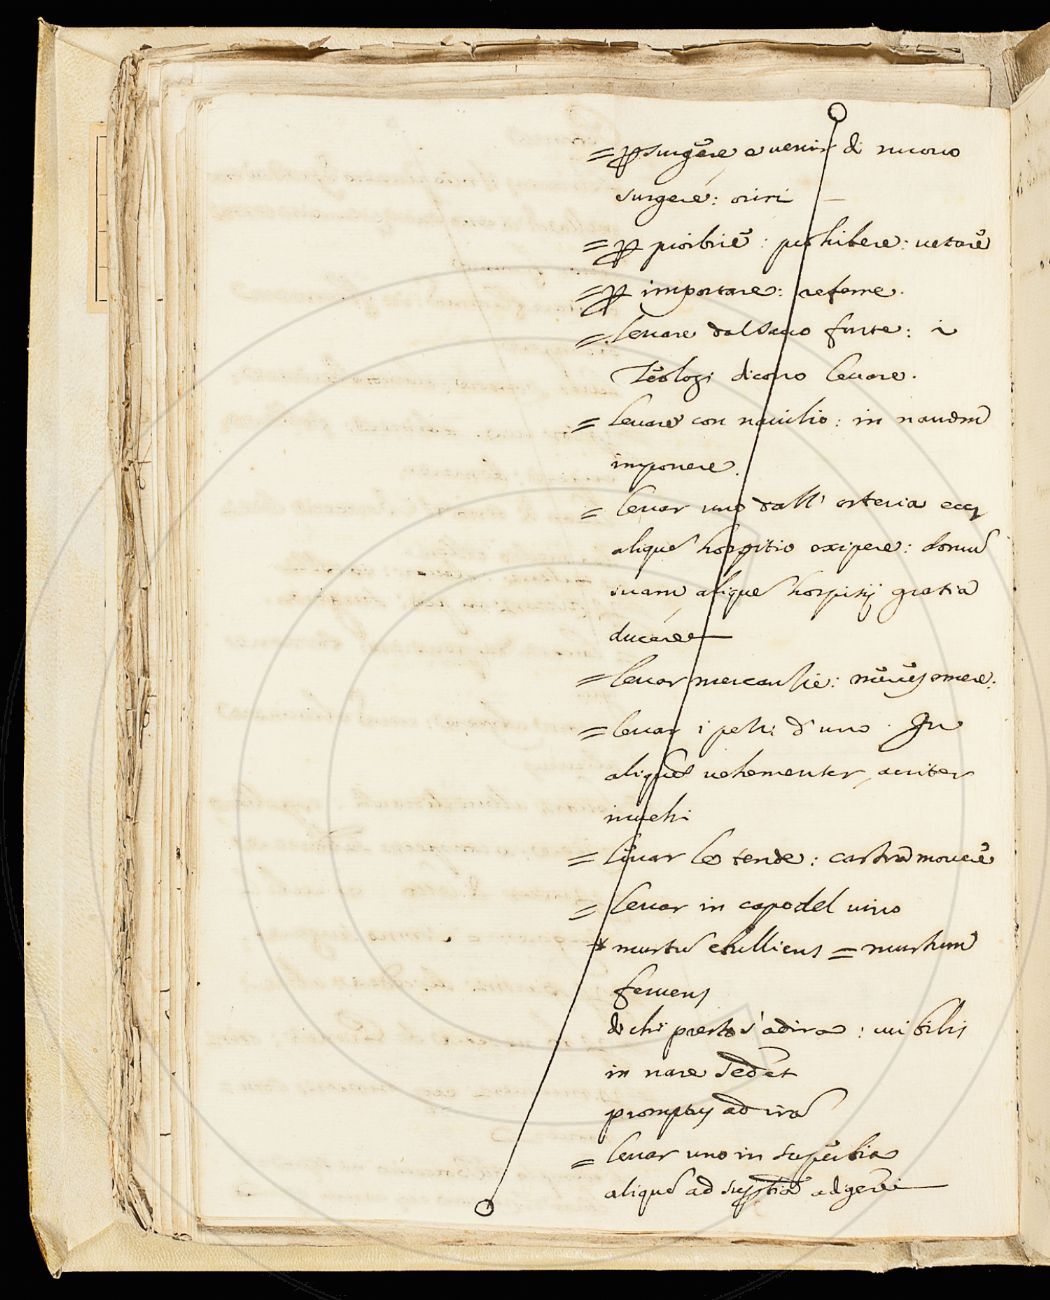 = p surgere e venir di nuovo
surgere: oriri
= p proibire: prohibere: vetare
= p importare: referre.
= levare dal sacro fonte: i
Teologi dicono levare.
= levare con navilio: in navem
imponere.
= levar uno dall' osteria
alique hospitio excipere: domu
suam alique hospitij gratia
ducere
= levar mercantie: emere:
= levar i pelli d' uno. In
alique vehementer, acriter
invehi
= levar le tende: castra movere
= levar in capo del vino
mustu ebulliens = mustum
fervens
di chi presto s' adira: cui bilis
in nare sedet
promptus ad ira
= levar uno in superbia
alique ad superbia adigere